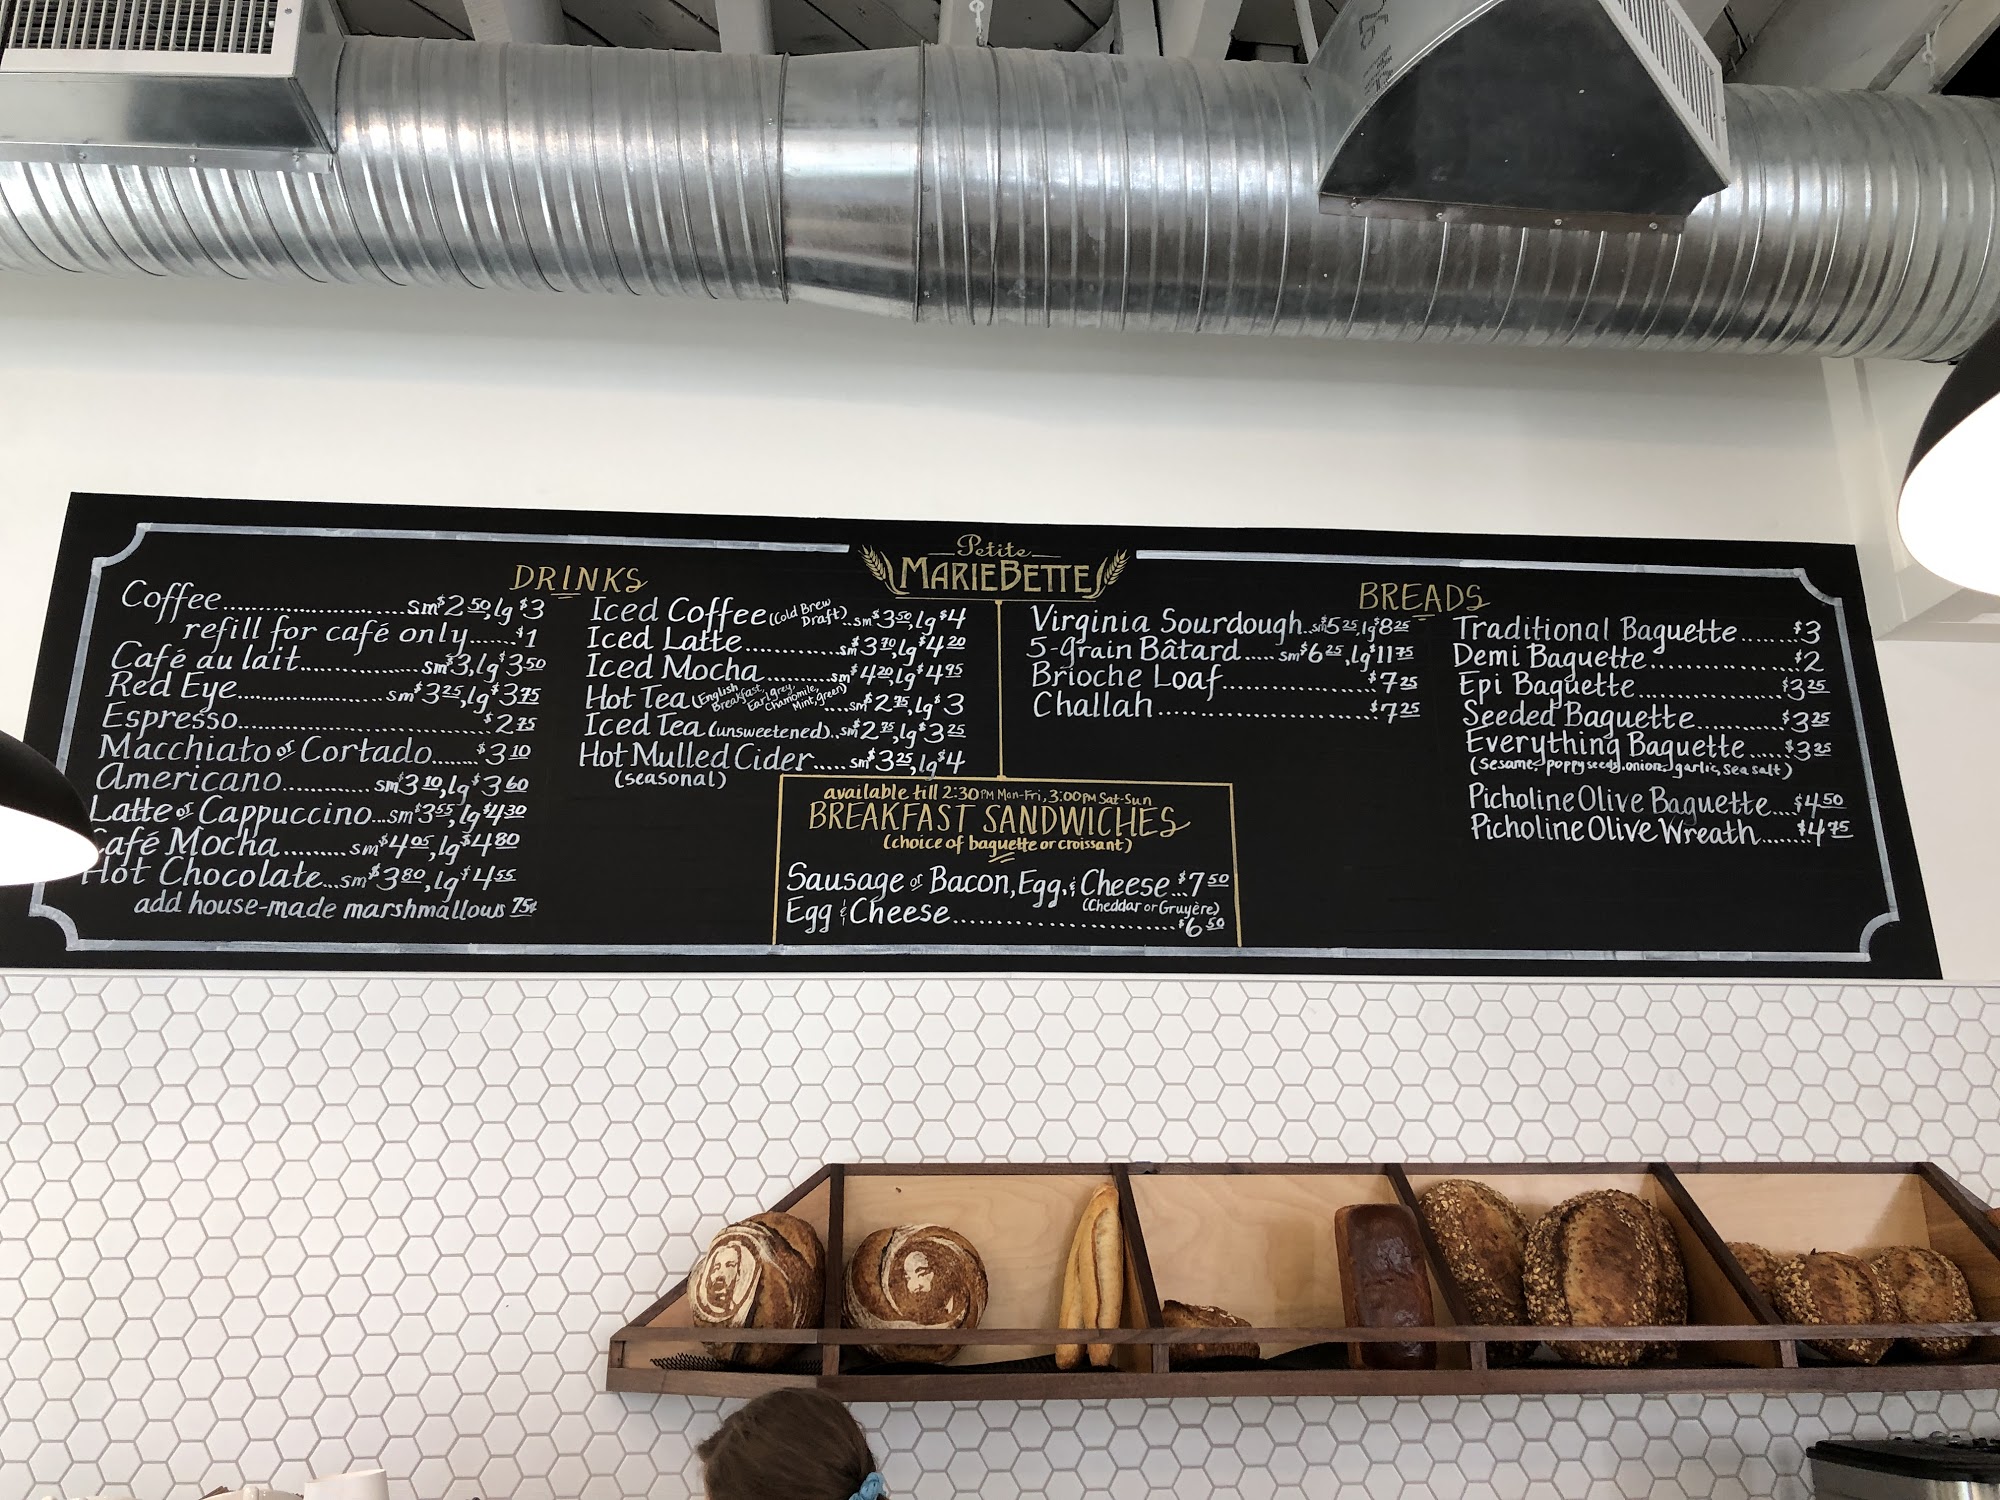 Petite
MARIEBETTE
DRINKS
Coffee.......................sm $2 50, lg $3
refill for café only......$1
Café au lait...............sm $3, lg $3 50
Red Eye..................sm $3 25, lg $3 75
Espresso..............................$2 75
Macchiato or Cortado.......$3 10
Americano..........sm $3 10, lg $3 60
Latte or Cappuccino...sm $3 55, lg $4 30
Café Mocha.........sm $4 05, lg $4 80
Hot Chocolate...sm $3 80, lg $4 55
add house-made marshmallows 75¢
Iced Coffee (Cold Brew Draft)..sm $3 50, lg $4
Iced Latte............sm $3 70, lg $4 20
Iced Mocha.........sm $4 20, lg $4 95
Hot Tea (English Breakfast, Earl Grey, Chamomile, Mint, green)....sm $2 75, lg $3
Iced Tea (unsweetened)..sm $2 75, lg $3 25
Hot Mulled Cider.....sm $3 25, lg $4
(seasonal)
available till 2:30PM Mon-Fri, 3:00PM Sat-Sun
BREAKFAST SANDWICHES
(choice of baguette or croissant)
Sausage or Bacon, Egg, & Cheese...$7 50
(Cheddar or Gruyère)
Egg & Cheese.........................$6 50
BREADS
Virginia Sourdough..sm $5 25, lg $8 25
5-Grain Bâtard.....sm $6 25, lg $11 75
Brioche Loaf................$7 25
Challah.......................$7 25
Traditional Baguette.......$3
Demi Baguette................$2
Epi Baguette................$3 25
Seeded Baguette..........$3 25
Everything Baguette.....$3 25
(sesame, poppy seeds, onion, garlic, sea salt)
Picholine Olive Baguette...$4 50
Picholine Olive Wreath.......$4 75